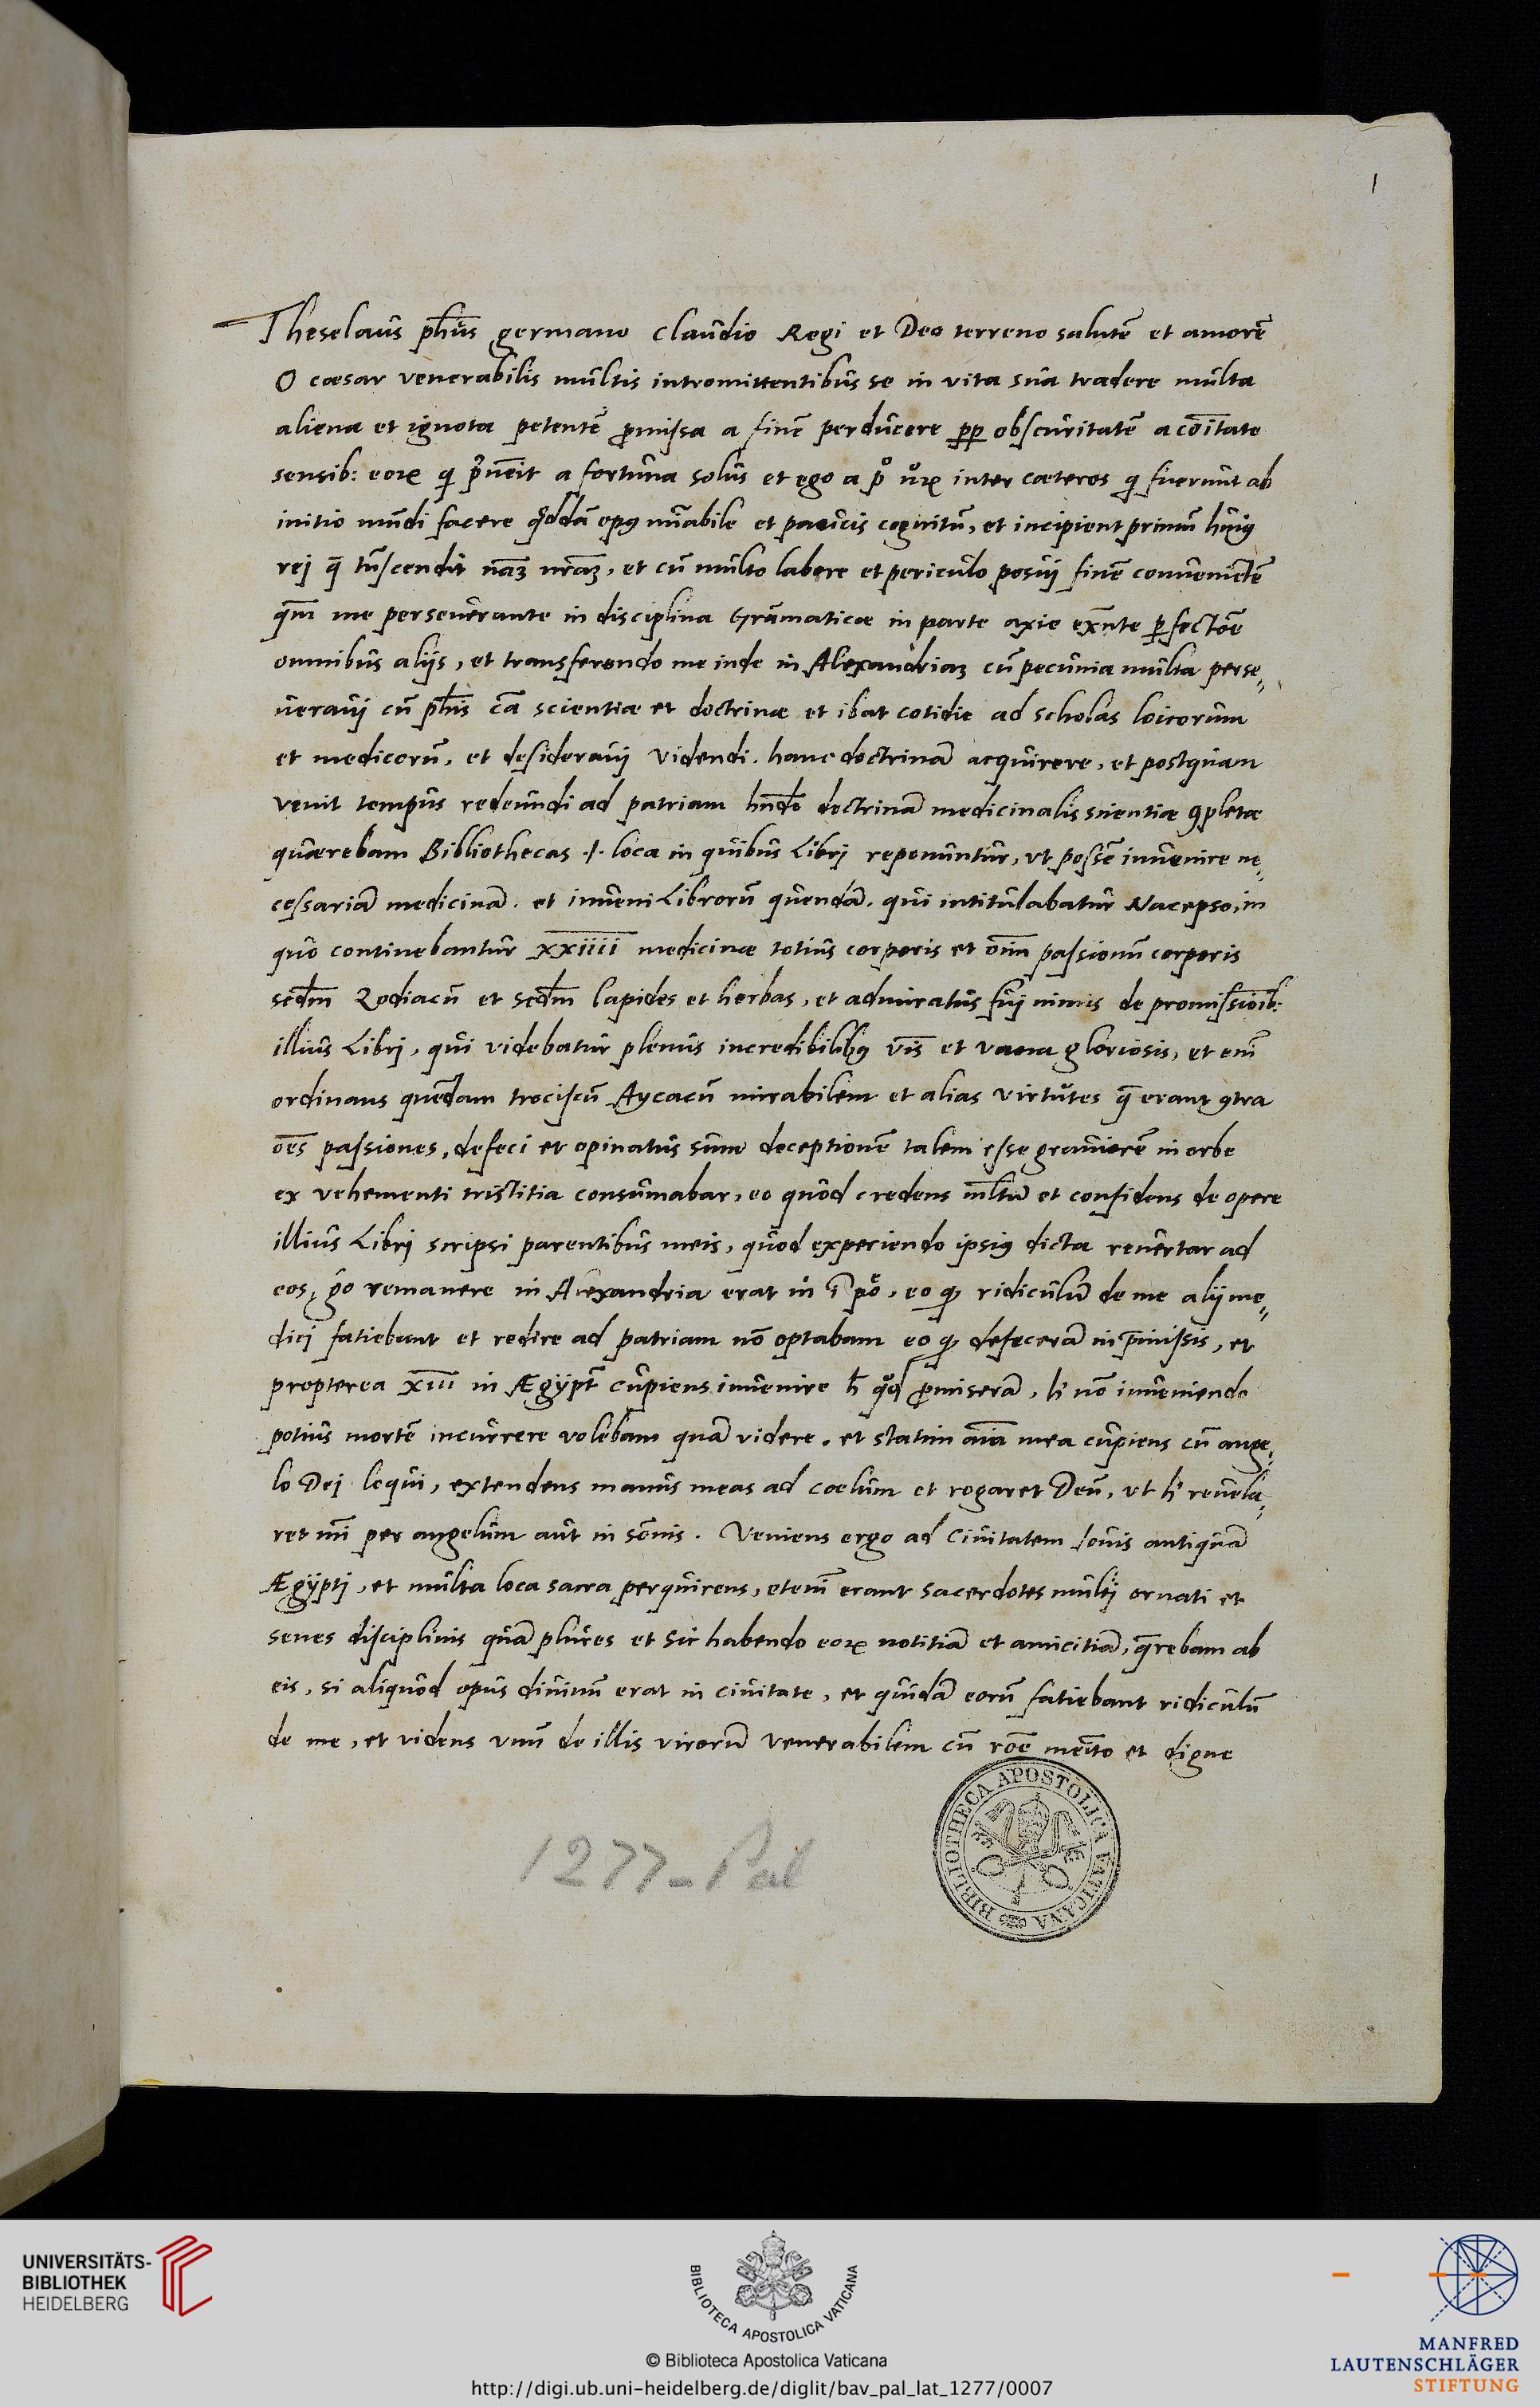 1
Theselaus ph̄us germano Claudio Regi et Deo terreno salutē et amorē
O cæsar venerabilis multis intromittentibus se in vita sua tradere multa
aliena et ignota petentē ꝓmissa a finē perducere ꝓꝑ obscuritatē a cōitate
sensib: eoꝝ qi a fortuna solus et ego a inter cæteros qi fuerunt ab
initio mūdi facere qddā opꝰ mīabile et paucis cognitū, et incipient primū huiꝰ
rej q̄ tn̄scendit nāꝫ nrāꝫ, et cū multo labore et periculo posuj finē convenientē
qm̄ me perseverante in disciplina Grāmaticæ in parte axie exn̄te ꝑfectōe
omnibus alijs, et transferendo me inde in Alexandriaꝫ cū pecunia multa perse„
veravj cū ph̄is cā scientiæ et doctrinæ et ibat cotidie ad scholas loicorum
et medicorū, et desideravj videndi. hanc doctrinā acquirere, et postquam
venit tempus redeundi ad patriam hn̄do doctrinā medicinalis scientiæ ꝯpletæ
quærebam Bibliothecas .i. loca in quibus Librj reponuntur, vt possē invenire ne„
cessariā medicinā. et inveni Librorū quendā. qui intitulabatur Nacepso, in
quo continebantur xxiiii medicinæ totius corporis et oīm passionū corporis
scdm̄ Zodiacū et scdm̄ lapides et herbas, et admiratus fuj nimis de promissioīb:
illius Librj, qui videbatur plenus incredibilibꝰ et vana gloriosis, et enī
ordinans quendam trociscū Aycacū mirabilem et alias virtutes q̄ erant ꝯtra
ōes passiones, defeci et opinatus sum deceptionē talem esse graviorē in orbe
ex vehementi tristitia consumabar, eo quod credens mltū et confidens de opere
illius Librj scripsi parentibus meis, quod experiendo ipsiꝰ dicta revertar ad
eos, remanere in Alexandria erat, eo ꝙ ridiculū de me alij me„
dicj fatiebant et redire ad patriam nō optabam eo ꝙ defecerā in p̄missis, et
propterea xiii in Ægÿpt̄ cupiens invenire h̄ qod ꝓmiserā, nō inveniendo
potius mortē incurrere volebam quā videre. et statim aīa mea cupiens cū ange„
lo Dej loqui, extendens manus meas ad coelum et rogaret Deū, vt h̄ revela„
ret mī per angelum aut in sōnis. Veniens ergo ad Civitatem Iovis antiquā
Ægÿptj, et multa loca sacra perquirens, etenī erant sacerdotes multj ornati et
senes disciplinis quā plures et sic habendo eoꝝ notitiā et amicitiā, q̄rebam ab
eis, si aliquod opus divinū erat in civitate, et quidā eorū fatiebant ridiculū
de me, et videns vnū de illis virorū venerabilem cū rōe meīto et digne
1277 - Pal
BIBLIOTHECA APOSTOLICA VATICANA
UNIVERSITÄTS-
BIBLIOTHEK
HEIDELBERG
BIBLIOTECA APOSTOLICA VATICANA
© Biblioteca Apostolica Vaticana
http://digi.ub.uni-heidelberg.de/diglit/bav_pal_lat_1277/0007
MANFRED
LAUTENSCHLÄGER
STIFTUNG